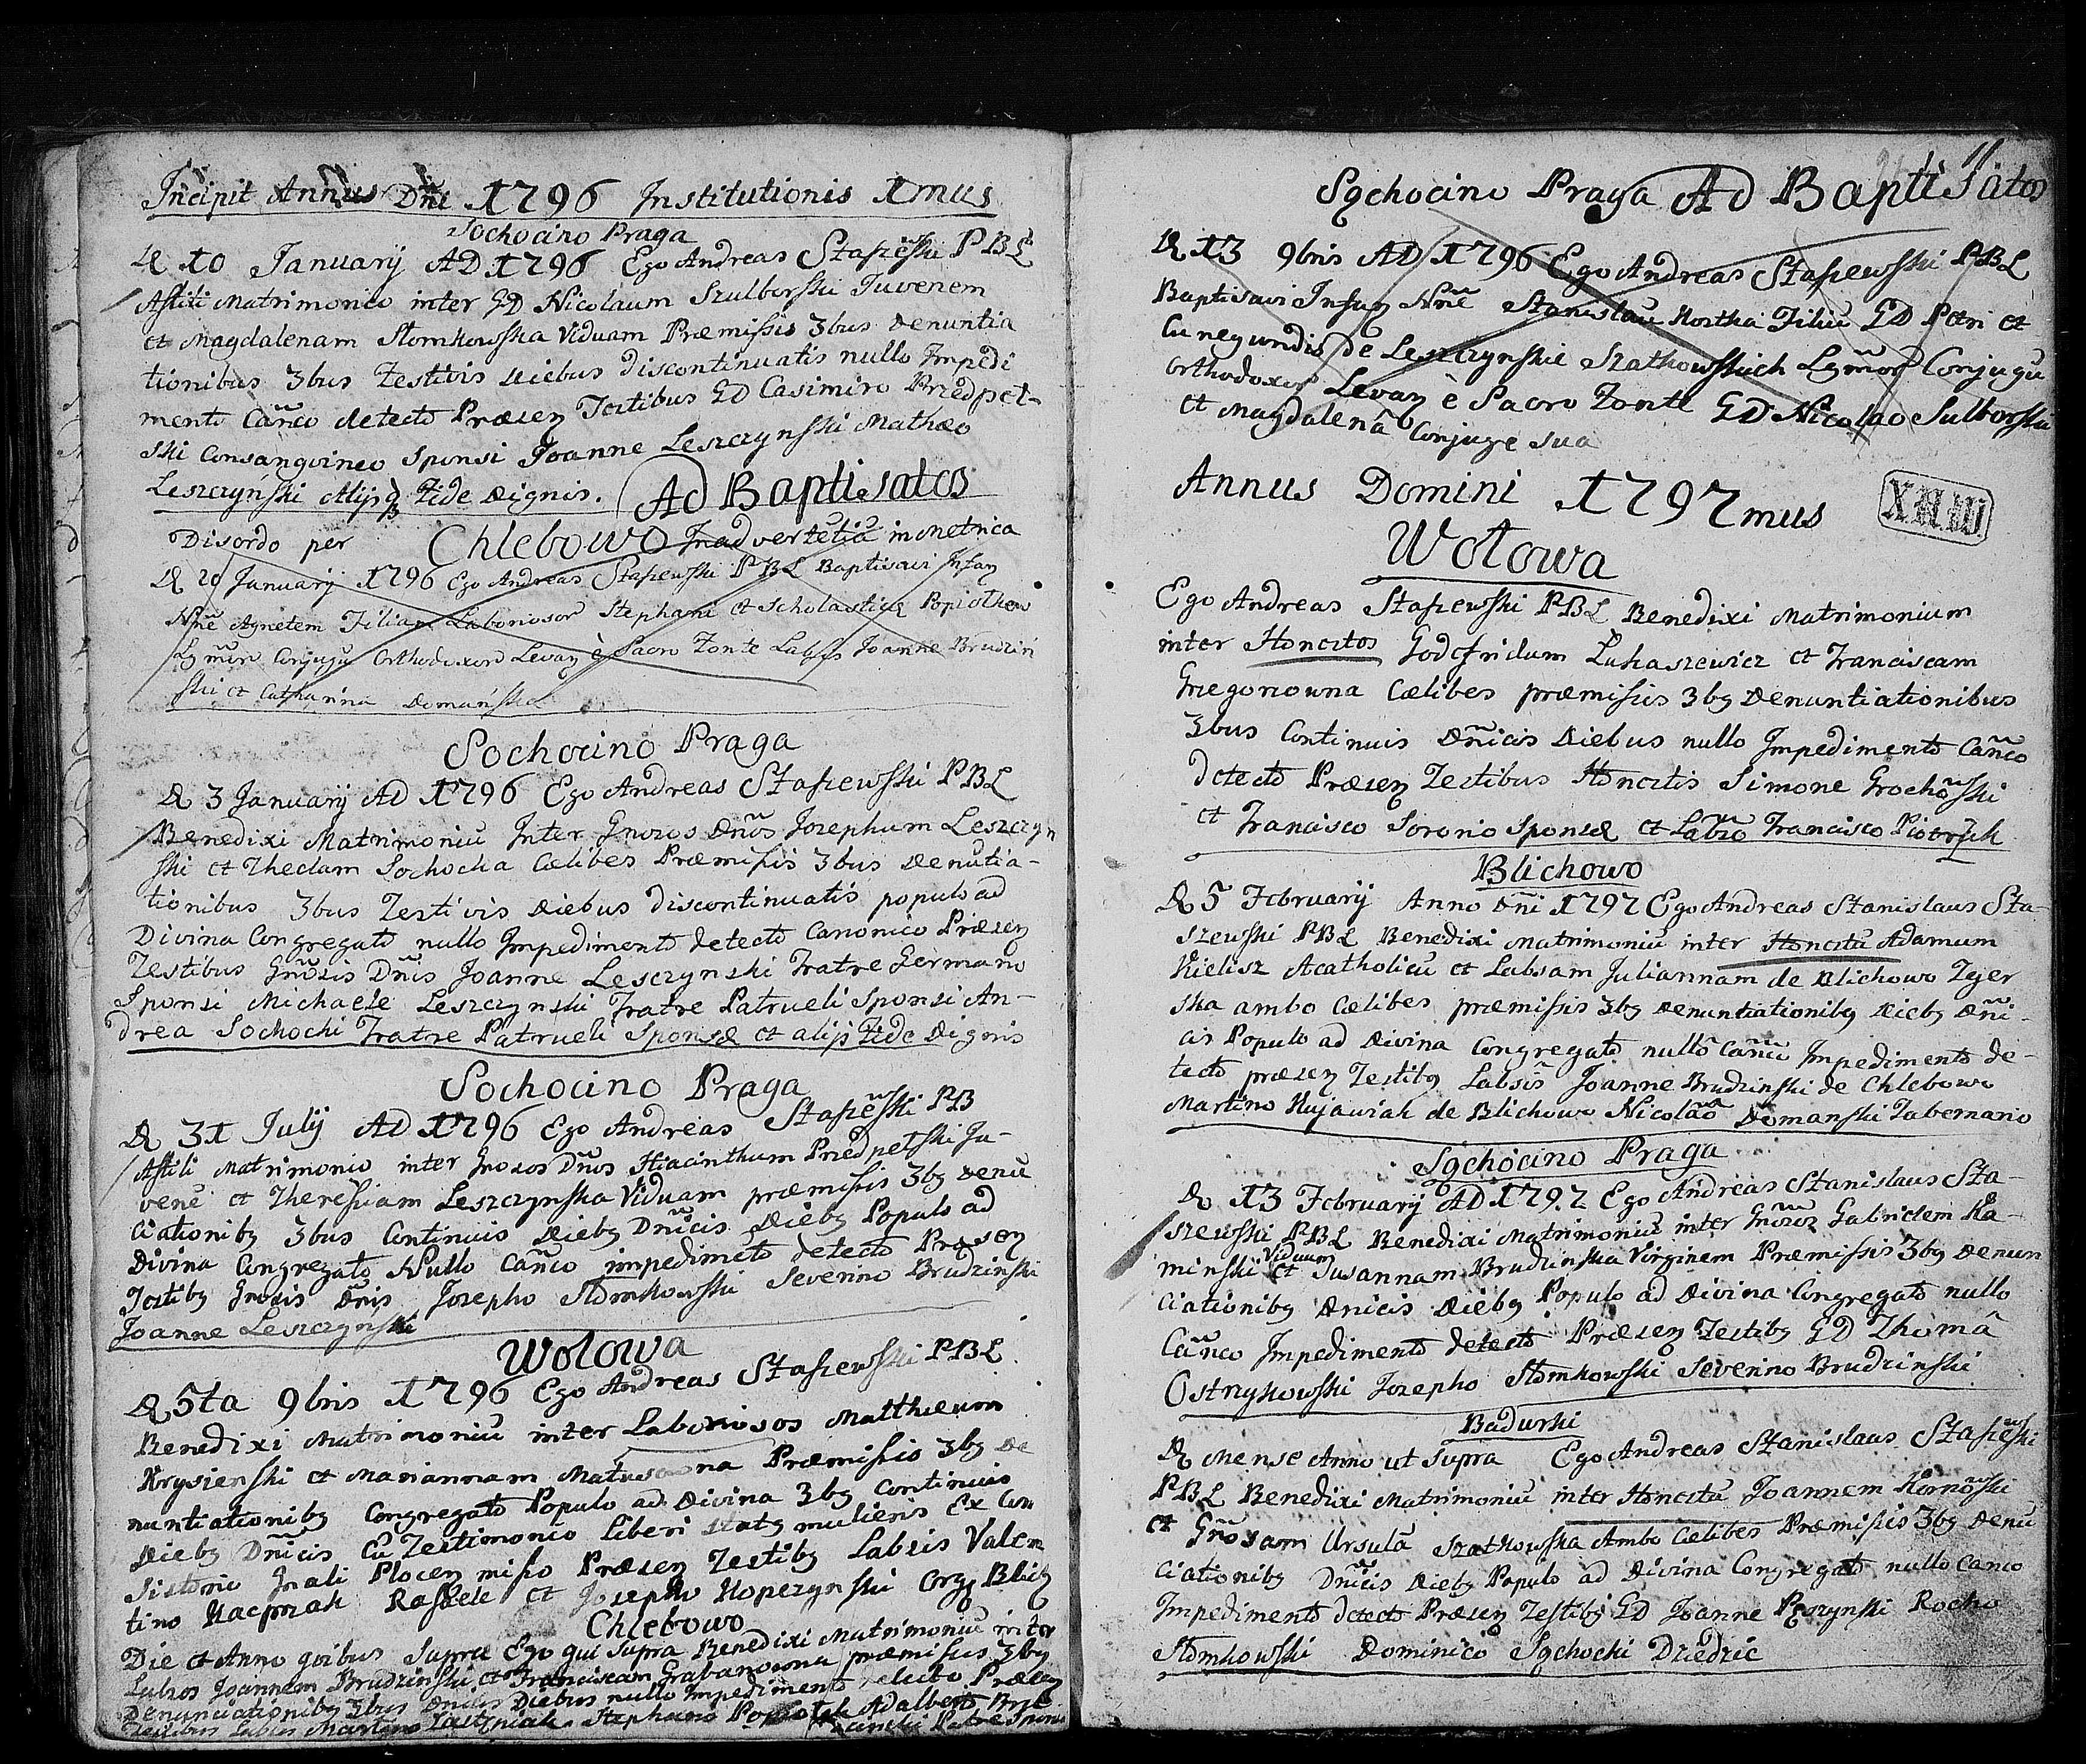 Incipit Annus Dni 1796 Institutionis 1mus
Sochocino Praga
D 10 Januarij AD 1796 Ego Andreas Staszewski PBL
Astiti Matrimonio inter GD Nicolaum Szulborski Juvenem
et Magdalenam Słomkowska Viduam Præmissis 3bus Denuntia
tionibus 3bus Festivis Diebus discontinuatis nullo Impedi
mento Canco detecto Præsen Testibus GD Casimiro Przedpeł-
ski Consanguineo Sponsi Joanne Leszczynski Mathæo
Leszczyński Alijsq Fide Dignis. Ad Baptisatos
Disordo per Chlebowo Inadvertetia in Metrica
D 20 Januarij 1796 Ego Andreas Staszewski PBL Baptisavi Infan
Nne Agnetem Filiam Laboriosor Stephani et Scholasticæ Popiołkow
Lgmor Conjugu Orthodoxor Levan è Sacro Fonte Labsis Joanne Brudziń
ski et Catharina Domańska
Sochocino Praga
D 3 Januarij AD 1796 Ego Andreas Staszewski PBL
Benedixi Matrimoniu Inter Gnosos Dnos Josephum Leszczyn
ski et Theclam Sochocka Cælibes Præmissis 3bus Denutia-
tionibus 3bus Festivis Diebus discontinuatis populo ad
Divina Congregato nullo Impedimento detecto Canonico Præsen
Testibus Gnosis Dnis Joanne Lesczynski Fratre Germano
Sponsi Michaele Leszczynski Fratre Patrueli Sponsi An-
drea Sochocki Fratre Patrueli Sponsæ et alijs Fide Dignis
Sochocino Praga
D 31 Julij AD 1796 Ego Andreas Staszewski PB
Astiti Matrimonio inter Gnosos Dnos Hiacinthum Przedpełski Ju-
vene et Theressiam Leszczynska Viduam præmissis 3bq Denu
ciationibq 3bus Continuis Diebq Dnicis Diebq Populo ad
Divina Congregato Nullo Canco impedimeto detecto Præsen
Testibq Gnosis Dnis Josepho Słomkowski Severino Brudzinski
Joanne Leszczynski
Wolowa
D 5ta 9bris 1796 Ego Andreas Staszewski PBL
Benedixi Matrimoniu inter Laboriosos Matthæum
Krysienski et Mariannam Præmissis 3bq De
nuntiationibq Congregato Populo ad Divina 3bq Continuis
Diebq Dnicis Cu Testimonio liberi statq mulieris Ex Con
sistorio Gnali Plocen misso Præsen Testibq Labsis Valen
tino Kacprzak Raffaele et Josepho Kopczynski
Chlebowo
Die et Anno quibus Supra Ego qui supra Benedixi Matrimoniu inter
Labsos Joannem Brudzinski et Franciscam Grabanowna præmissis 3bq
Denunciationibq 3bus Dnicis Diebus nullo Impedimento detecto Præsen
Testibus Labsis Martino Stephano Popiołek Adalberto
Patre Sponsi
Sąchocino Praga Ad Baptisatos
11
D 13 9bris AD 1796 Ego Andreas Staszewski PBL
Baptisavi Infan Nne Stanislau Kostka Filiu GD Petri et
Cunegundis de Leszczynskie Szatkowskich Lgmor Conjugu
Orthodoxor Levan è Sacro Fonte GD Nicolao Sulborski
et Magdalena Conjuge sua
Annus Domini 1797mus
Wołowa
Ego Andreas Staszewski PBL Benedixi Matrimonium
inter Honestos Godefridum Lukaszewicz et Franciscam
Gregorowna Cælibes præmissis 3bq Denuntiationibus
3bus Continuis Dnicis Diebus nullo Impedimento Canco
detecto Præsen Testibus Honestis Simone Grochowski
et Francisco Soronio Sponsæ et Labso Francisco Piotrzik
Blichowo
D 5 Februarij Anno Dni 1797 Ego Andreas Stanislaus Sta-
szewski PBL Benedixi Matrimoniu inter Honestu Adamum
Kielisz Acatholicu et Labsam Juliannam de Blichowo Zger
ska ambo Cælibes præmissis 3bq Denuntiationibq Diebq Dni-
cis Populo ad Divina Congregato nullo Canco Impedimento de-
tecto præsen Testibq Labsis Joanne Brudzinski de Chlebowo
Martino Kujawiak de Blichowo Nicolao Domanski Tabernario
Sąchocino Praga
D 13 Februarij AD 1797 Ego Andreas Stanislaus Sta-
szewski PBL Benedixi Matrimoniu inter Gnosos Gabrielem Ka-
minski Viduum et Susannam Brudzinska Virginem Præmissis 3bq Denun
ciationibq Dnicis Diebq Populo ad Divina Congregato nullo
Canco Impedimento detecto Præsen Testibq GD Thoma
Ostrzykowski Josepho Słomkowski Severino Brudzinski
Badurki
D Mense Anno ut Supra Ego Andreas Stanislaus Staszewski
PBL Benedixi Matrimoniu inter Honestu Joannem
et Gnosam Ursula Szatkowska Ambo Cælibes Præmissis 3bq Denu
ciationibq Dnicis Diebq Populo ad Divina Congregato nullo Canco
Impedimento detecto Præsen Testibq GD Joanne Pęczynski Rocho
Słomkowski Dominico Sąchocki Dziedzic